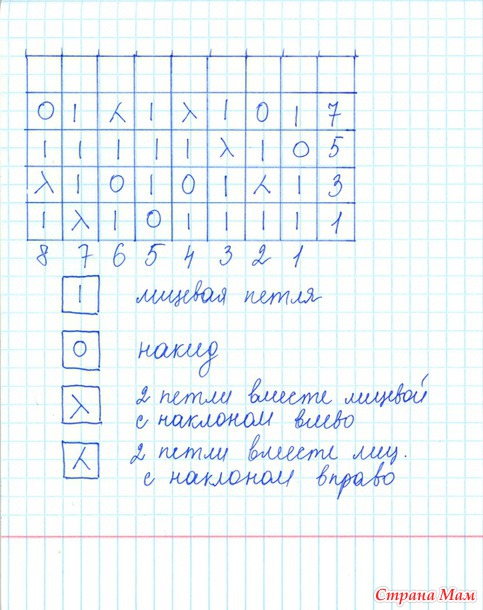 O I ⅄ I λ I O I 7
I I I I I λ I O 5
λ I O I O I ⅄ I 3
I λ I O I I I I 1
8 7 6 5 4 3 2 1
I лицевая петля
O накид
λ 2 петли вместе лицевой
с наклоном влево
⅄ 2 петли вместе лиц.
с наклоном вправо
Страна Мам